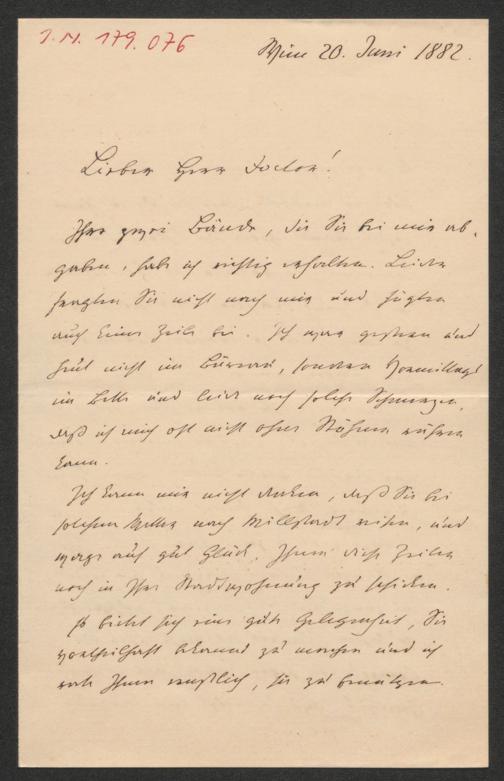 J.N. 179.076
Wien 20. Juni 1882.
Lieber Herr Doctor!
Ihre zwei Bände, die Sie bei mir ab-
gaben, habe ich richtig erhalten. Leider
fragten Sie nicht nach mir und fügten
auch keine Zeile bei. Ich war gestern und
heut nicht im Büreau, sondern Vormittags
im Bette und leide noch solche Schmerzen,
daß ich mich oft nicht ohne Stöhnen rühren
kann.
Ich kann mir nicht denken, daß Sie bei
solchem Wetter nach Millstadt reisen, und
wage auf gut Glück, Ihnen diese Zeilen
noch in Ihre Stadtwohnung zu schicken.
Es bietet sich eine gute Gelegenheit, Sie
vortheilhaft bekannt zu machen und ich
rate Ihnen ernstlich, sie zu benützen.